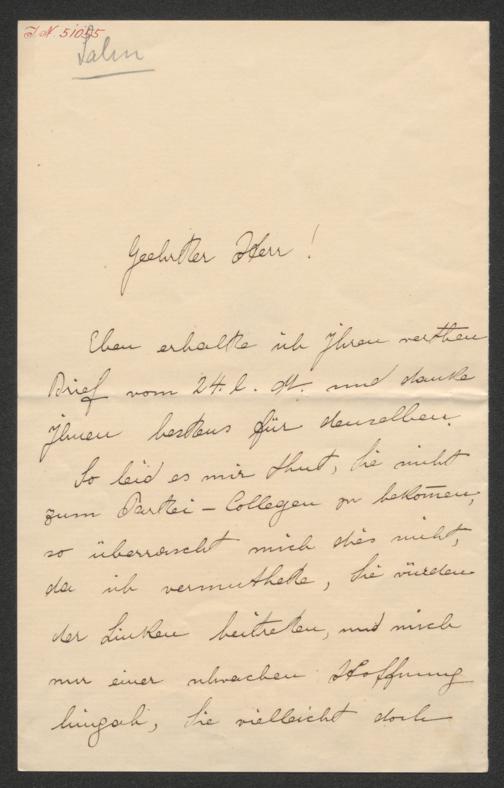 I.N. 51055
Salm
Geehrter Herr!
Eben erhalte ich Ihren werthen
Brief vom 24. l. M. und danke
Ihnen bestens für denselben.
So leid es mir thut, Sie nicht
zum Partei-Collegen zu bekom̄en,
so überrascht mich dies nicht,
da ich vermuthete, Sie würden
der Linken beitreten, und mich
nur einer schwachen Hoffnung
hingab, Sie vielleicht doch